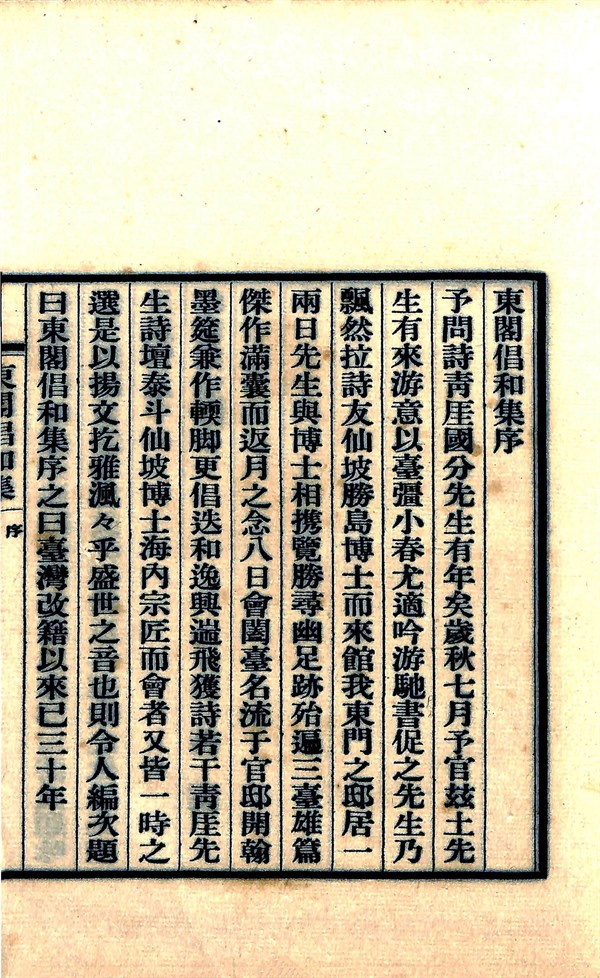 東閣倡和集序
予問詩青厓國分先生有年矣歲秋七月予官玆土先
生有來游意以臺彊小春尤適吟游馳書促之先生乃
飄然拉詩友仙坡勝島博士而來館我東門之邸居一
兩日先生與博士相携覽勝尋幽足跡殆遍三臺雄篇
傑作滿囊而返月之念八日會闔臺名流于官邸開翰
墨筵兼作輭脚更倡迭和逸興遄飛獲詩若干青厓先
生詩壇泰斗仙坡博士海內宗匠而會者又皆一時之
選是以揚文扢雅渢々乎盛世之音也則令人編次題
曰東閣倡和集序之曰臺灣改籍以來已三十年
東閣倡和集 序